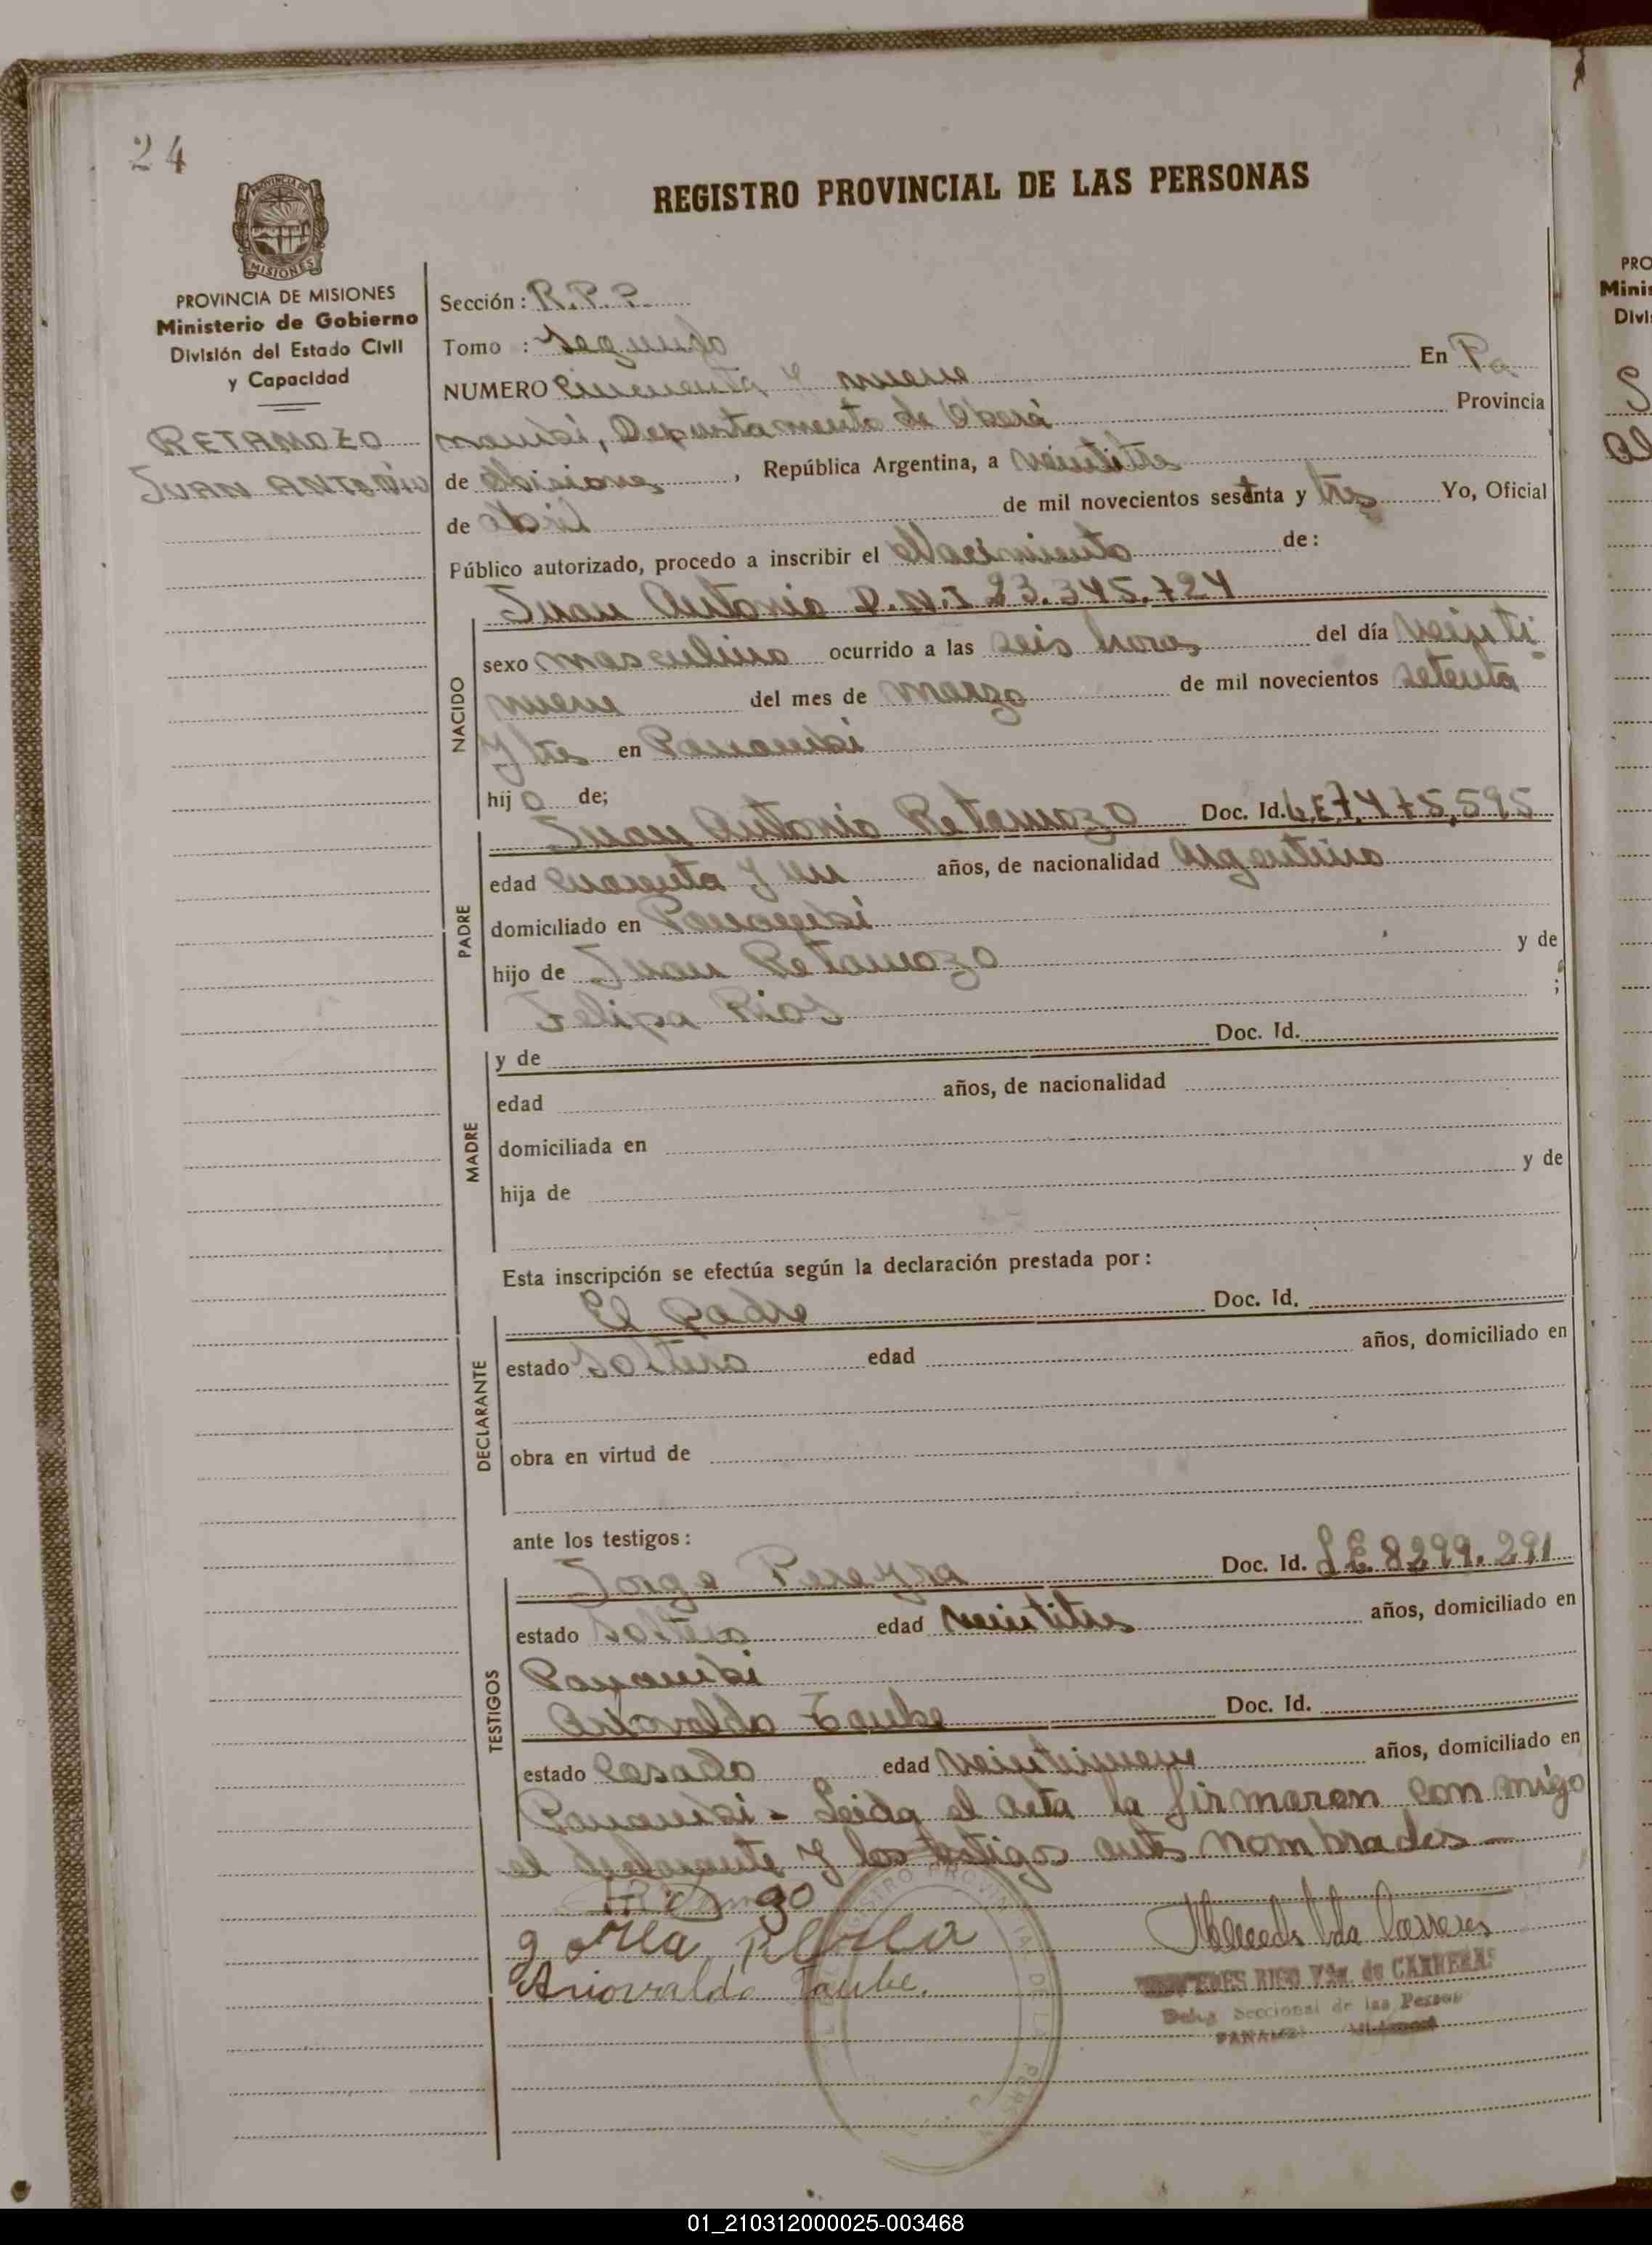 24
REGISTRO PROVINCIAL DE LAS PERSONAS
MISIONES
PROVINCIA DE MISIONES
Ministerio de Gobierno
División del Estado Civil
y Capacidad
RETAMOZO
JUAN ANTONIO
Sección: R.P.P.
Tomo : Segundo
NUMERO Cincuenta y nueve En Pa
nambí, Departamento de Oberá Provincia
de Misiones, República Argentina, a veintitres
de Abril de mil novecientos setenta y tres Yo, Oficial
Público autorizado, procedo a inscribir el Nacimiento de:
Juan Antonio D.N.I 23.345.724
NACIDO
sexo masculino ocurrido a las seis horas del día veinti
nueve del mes de marzo de mil novecientos setenta
y tres en Panambi
hijo de;
PADRE
Juan Antonio Retamozo Doc. Id. L.E 7.475.595
edad cuarenta y un años, de nacionalidad Argentino
domiciliado en Panambi
hijo de Juan Retamozo y de
Felipa Rios ;
MADRE
y de Doc. Id.
edad años, de nacionalidad
domiciliada en
hija de y de
Esta inscripción se efectúa según la declaración prestada por:
DECLARANTE
El padre Doc. Id.
estado Soltero edad años, domiciliado en
obra en virtud de
ante los testigos:
TESTIGOS
Jorge Pereyra Doc. Id. L.E. 8299.291
estado Soltero edad veintitres años, domiciliado en
Panambi
Ariovaldo Taube Doc. Id.
estado Casado edad veintinueve años, domiciliado en
Panambi - Leida el acta la firmaron con migo
el declarante y los testigos antes nombrados
Ariovaldo Taube.
Mercedes Vda Carreras
MERCEDES RIGO Vda. de CARRERAS
Deleg. Seccional de las Person
PANAMBI Misiones
PRO
Minis
Divi
01_210312000025-003468